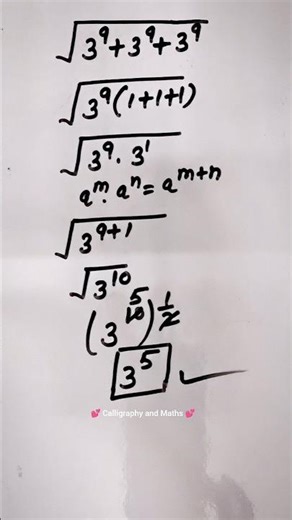 √3⁹+3⁹+3⁹
√3⁹(1+1+1)
√3⁹·3¹
aᵐ·aⁿ=aᵐ⁺ⁿ
√3⁹⁺¹
√3¹⁰
5
(3¹⁰)^1/2
3⁵ ✓
💕 Calligraphy and Maths 💕